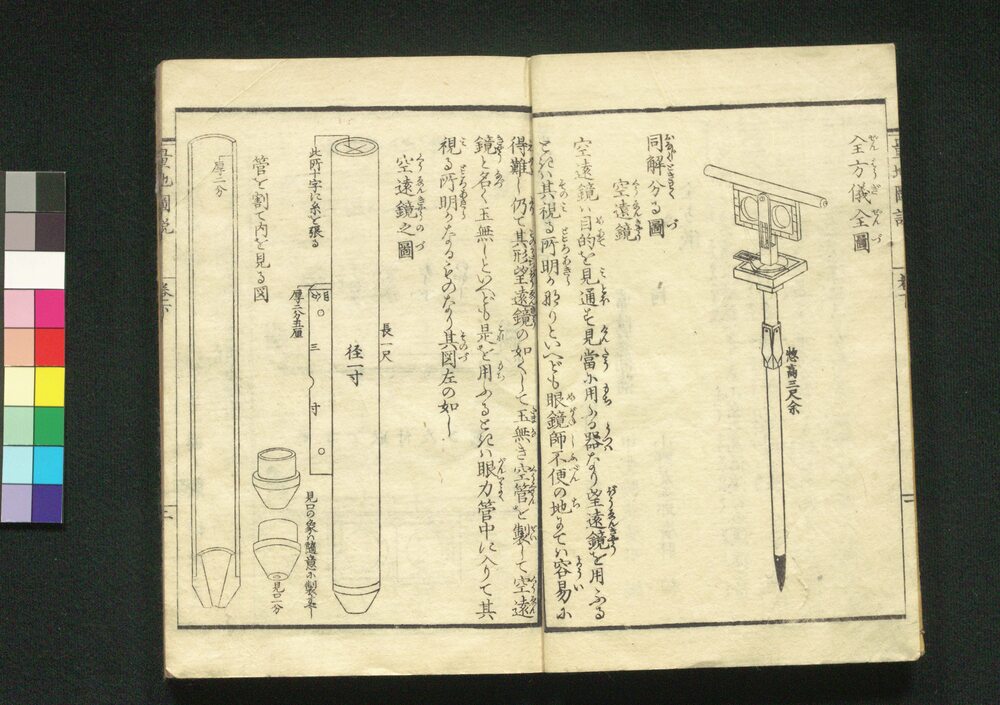 全方儀全圖
惣高三尺余
同解分る圖
空遠鏡
空遠鏡ハ目的を見通す見當に用ふる器なり望遠鏡を用ふる
ときハ其視る所明か也りといへども眼鏡師不便の地にてハ容易に
得難し仍て其形望遠鏡の如くして玉無き空管を製して空遠
鏡と名く玉無しといへども是を用ふるときハ眼力管中に入りて其
視る所明かなるものなり其図左の如し
空遠鏡之圖
長一尺
径一寸
此所十字に糸を張る
三寸
厚二分五厘
見口の象ハ隨意に製すべし
見口一分
管を割て内を見る図
厚二分